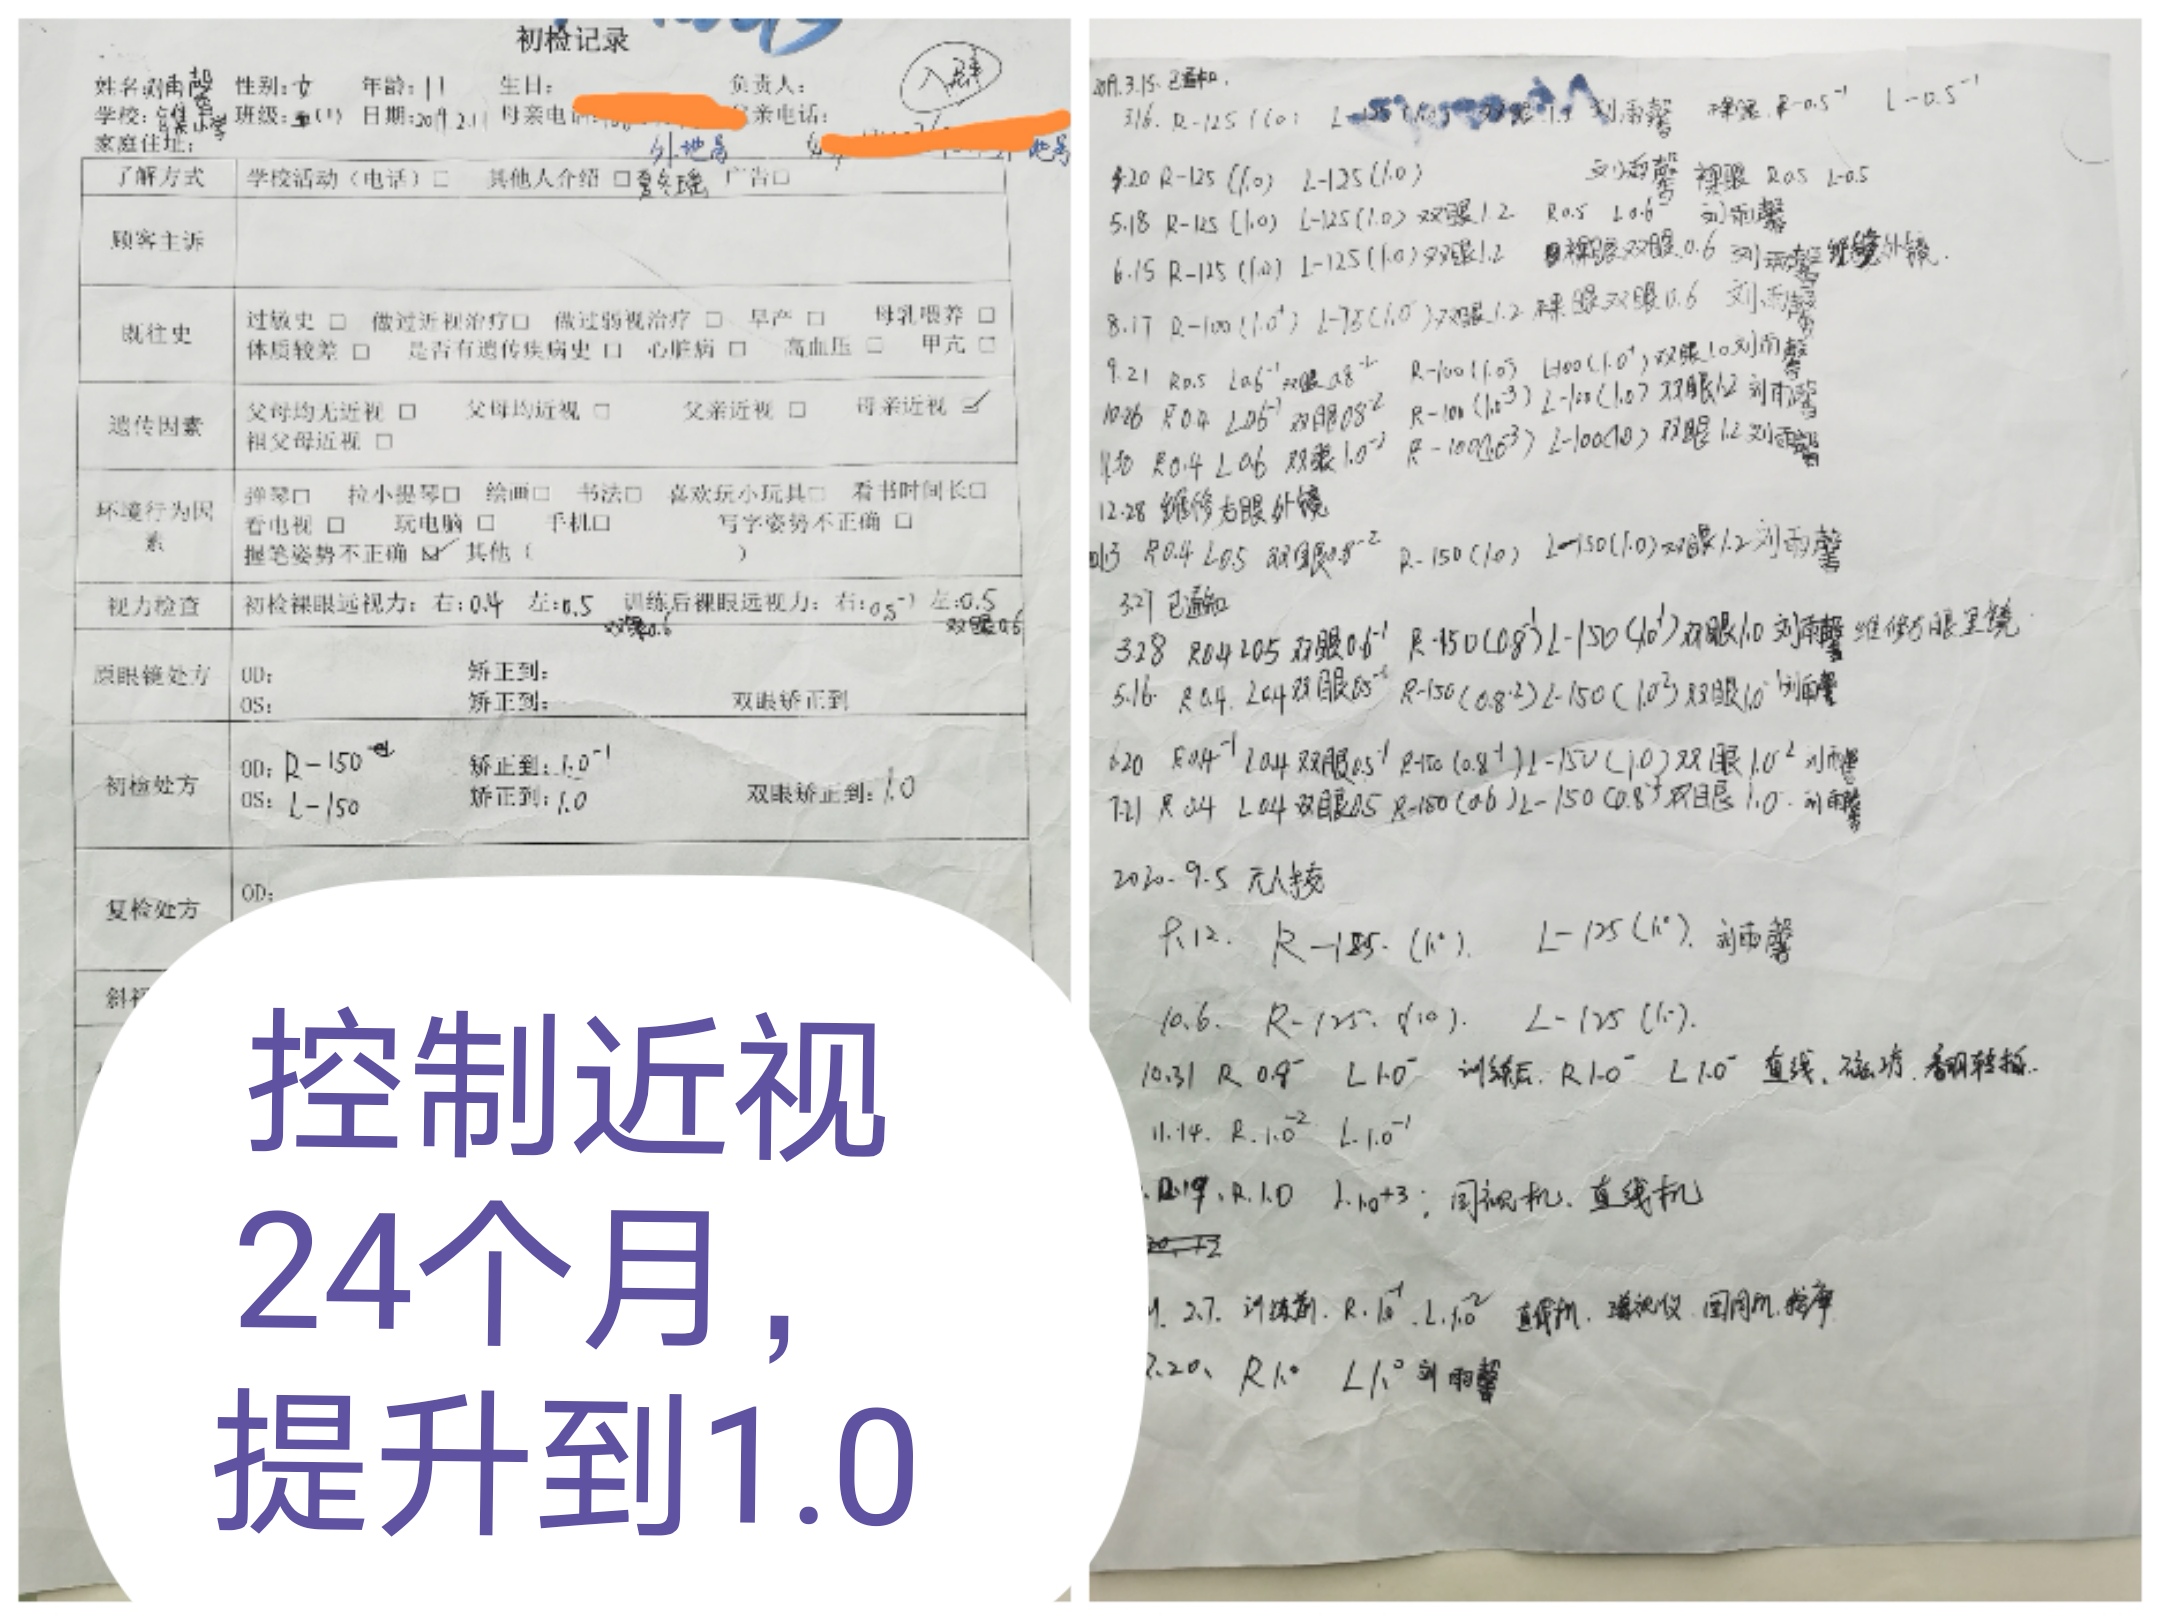 初检记录
入群
姓名: 刘雨馨 性别: 女 年龄: 11 生日: 负责人:
学校: 小学 班级: 五(1) 日期: 2019.2.11 母亲电话: 父亲电话:
家庭住址: 外地号 地号
了解方式 学校活动（电话）□ 其他人介绍 □ 广告□
顾客主诉
既往史 过敏史 □ 做过近视治疗□ 做过弱视治疗 □ 早产 □ 母乳喂养 □
体质较差 □ 是否有遗传疾病史 □ 心脏病 □ 高血压 □ 甲亢 □
遗传因素 父母均无近视 □ 父母均近视 □ 父亲近视 □ 母亲近视 ☑
祖父母近视 □
环境行为因素 弹琴□ 拉小提琴□ 绘画□ 书法□ 喜欢玩小玩具□ 看书时间长□
看电视 □ 玩电脑 □ 手机□ 写字姿势不正确 □
握笔姿势不正确 ☑ 其他（ ）
视力检查 初检裸眼远视力: 右: 0.4 左: 0.5 训练后裸眼远视力: 右: 0.5⁻¹ 左: 0.5
双眼0.6 双眼0.6
原眼镜处方 OD: 矫正到:
OS: 矫正到: 双眼矫正到
初检处方 OD: R-150 矫正到: 1.0⁻¹
OS: L-150 矫正到: 1.0 双眼矫正到: 1.0
复检处方 OD:
控制近视
24个月，
提升到1.0
2019.3.15. 已通知.
3.16. R-125 (1.0) 刘雨馨 裸眼. R-0.5⁻¹ L-0.5⁻¹
4.20 R-125 (1.0) L-125(1.0) 刘雨馨 裸眼 R0.5 L0.5
5.18 R-125 (1.0) L-125(1.0) 双眼1.2 R0.5 L0.6⁻ 刘雨馨
6.15 R-125 (1.0) L-125(1.0) 双眼1.2 裸眼双眼0.6 刘雨馨 外镜.
8.17 R-100(1.0⁺) L-75(1.0⁻) 双眼1.2 裸眼双眼0.6 刘雨馨
9.21 R0.5 L0.6⁻¹ 双眼0.8⁻² R-100(1.0) L-100(1.0⁺) 双眼1.0 刘雨馨
10.26 R0.4 L0.6⁻¹ 双眼0.8⁻² R-100(1.0⁻³) L-100(1.0) 双眼1.2 刘雨馨
11.30 R0.4 L0.6 双眼1.0⁻² R-100(1.0⁻³) L-100(1.0) 双眼1.2 刘雨馨
12.28 维修右眼外镜
R0.4 L0.5 双眼0.8⁻² R-150(1.0) L-150(1.0) 双眼1.2 刘雨馨
3.27 已通知
3.28 R0.4 L0.5 双眼0.6⁻¹ R-150(0.8⁻¹) L-150(1.0⁻¹) 双眼1.0 刘雨馨 维修右眼里镜
5.16. R0.4. L0.4 双眼0.5⁻¹ R-150(0.8⁻²) L-150(1.0⁻²) 双眼1.0⁻¹ 刘雨馨
6.20 R0.4⁻¹ L0.4 双眼0.5⁻¹ R-150(0.8⁻¹) L-150(1.0) 双眼1.0⁻² 刘雨馨
7.21 R0.4 L0.4 双眼0.5 R-150(0.6) L-150(0.8⁻³) 双眼1.0. 刘雨馨
2020.9.5 无人接
9.12. R-125. (1.0). L-125(1.0). 刘雨馨
10.6. R-125. (1.0). L-125(1.0).
10.31 R 0.8⁻ L 1.0⁻ 训练后. R1.0⁻ L1.0⁻ 直线.
11.14. R.1.0⁻² L.1.0⁻¹
12.19. R.1.0 L.1.0⁺³; 同视机、直线机
2.7. 训练前. R.1.0⁻¹. L.1.0⁻² 按摩
2.20、 R1.0 L1.0 刘雨馨